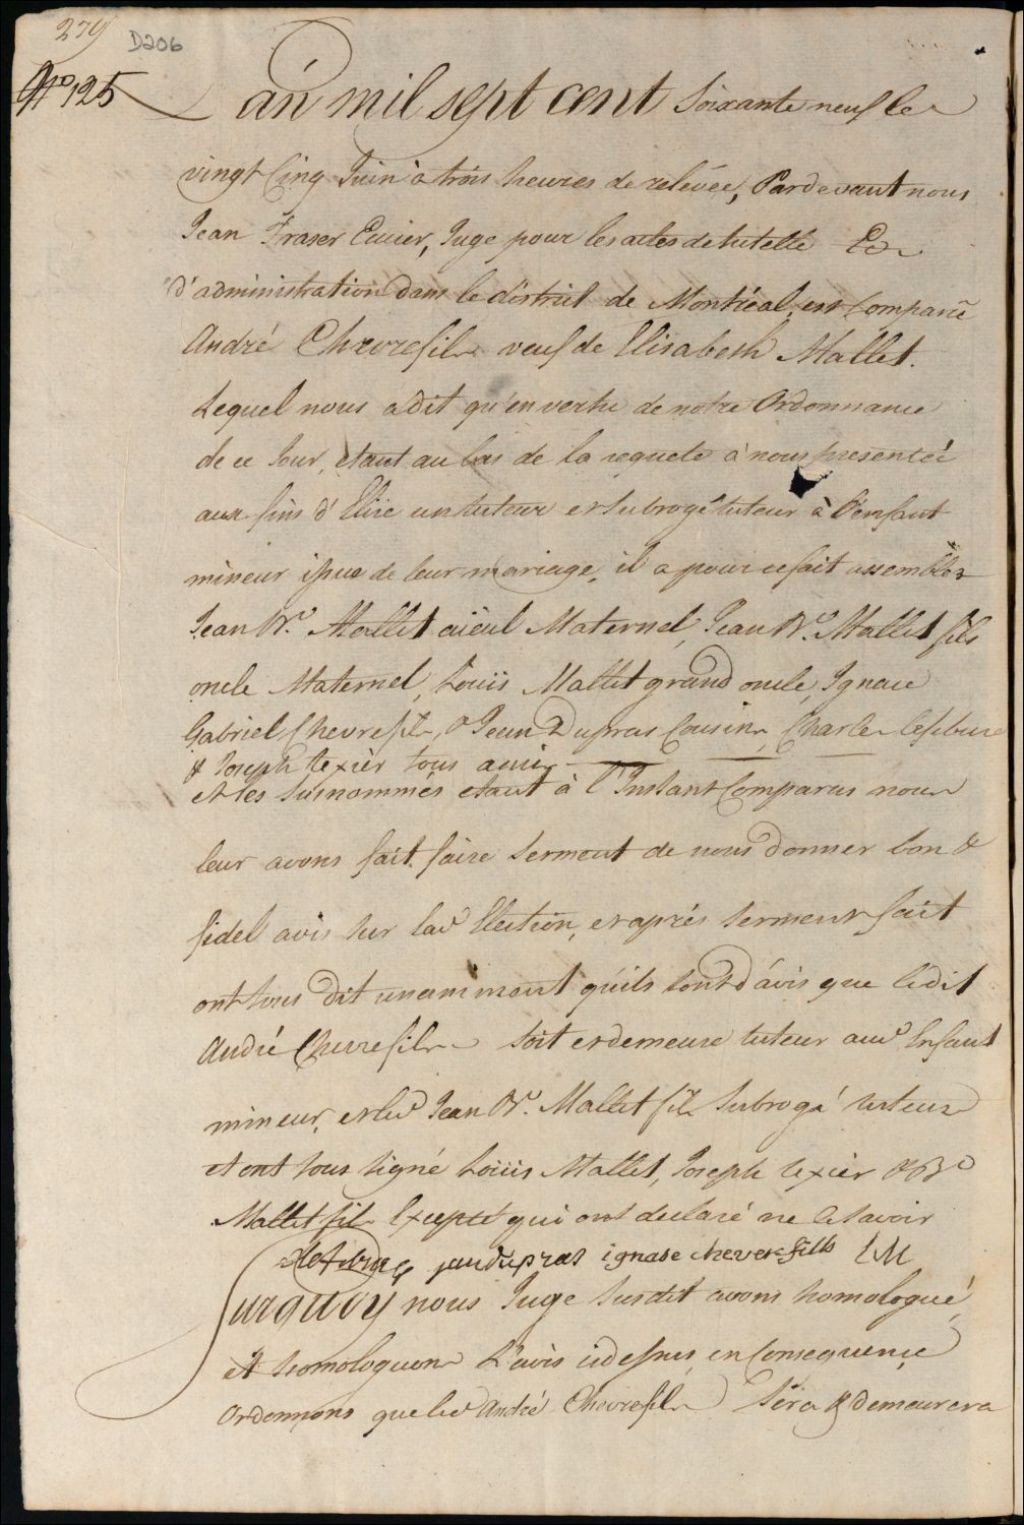 279 D206
No 125
L'an mil sept cent soixante neuf le
vingt Cinq Juin à trois heures de relevée, Pardevant nous
Jean Fraser Ecuier, Juge pour les actes de tutelle Et
d'administration dans le district de Montréal, est Comparu
André Chevrefils veuf de Elisabeth Mallet.
Lequel nous a dit qu'en vertu de notre Ordonnance
de ce Jour, etant au bas de la requete à nous presentée
aux fins d'Elire un tuteur et subrogé tuteur à l'enfant
mineur issue de leur mariage, il a pour ce fait assembler
Jean Bte. Mallet aïeul Maternel, Jean Bte. Mallet fils
oncle Maternel, Loüis Mallet grand oncle, Ignace
Gabriel Chevrefils, & Jean Dupras Cousins, Charles Lefebure
& Joseph Texier tous amis
et les susnommés etant à l'Instant Comparus nous
leur avons fait faire serment de nous donner bon &
fidel avis sur lad Election, et aprés serment fait
ont tous dit unanimment qu'ils sont d'avis que ledit
André Chevrefils soit et demeure tuteur aud Enfant
mineur, et led Jean Bte. Mallet fils subrogé tuteur
et ont tous signé Loüis Mallet, Joseph Texier & Bte
Mallet fils Excepté qui ont declaré ne le savoir
Lefebure jan dupras ignase chevere fills LM
Surquoy nous Juge susdit avons homologué,
et homologuons L'avis cidessus, en Consequence
Ordonnons que led André Chevrefils sera & demeurera